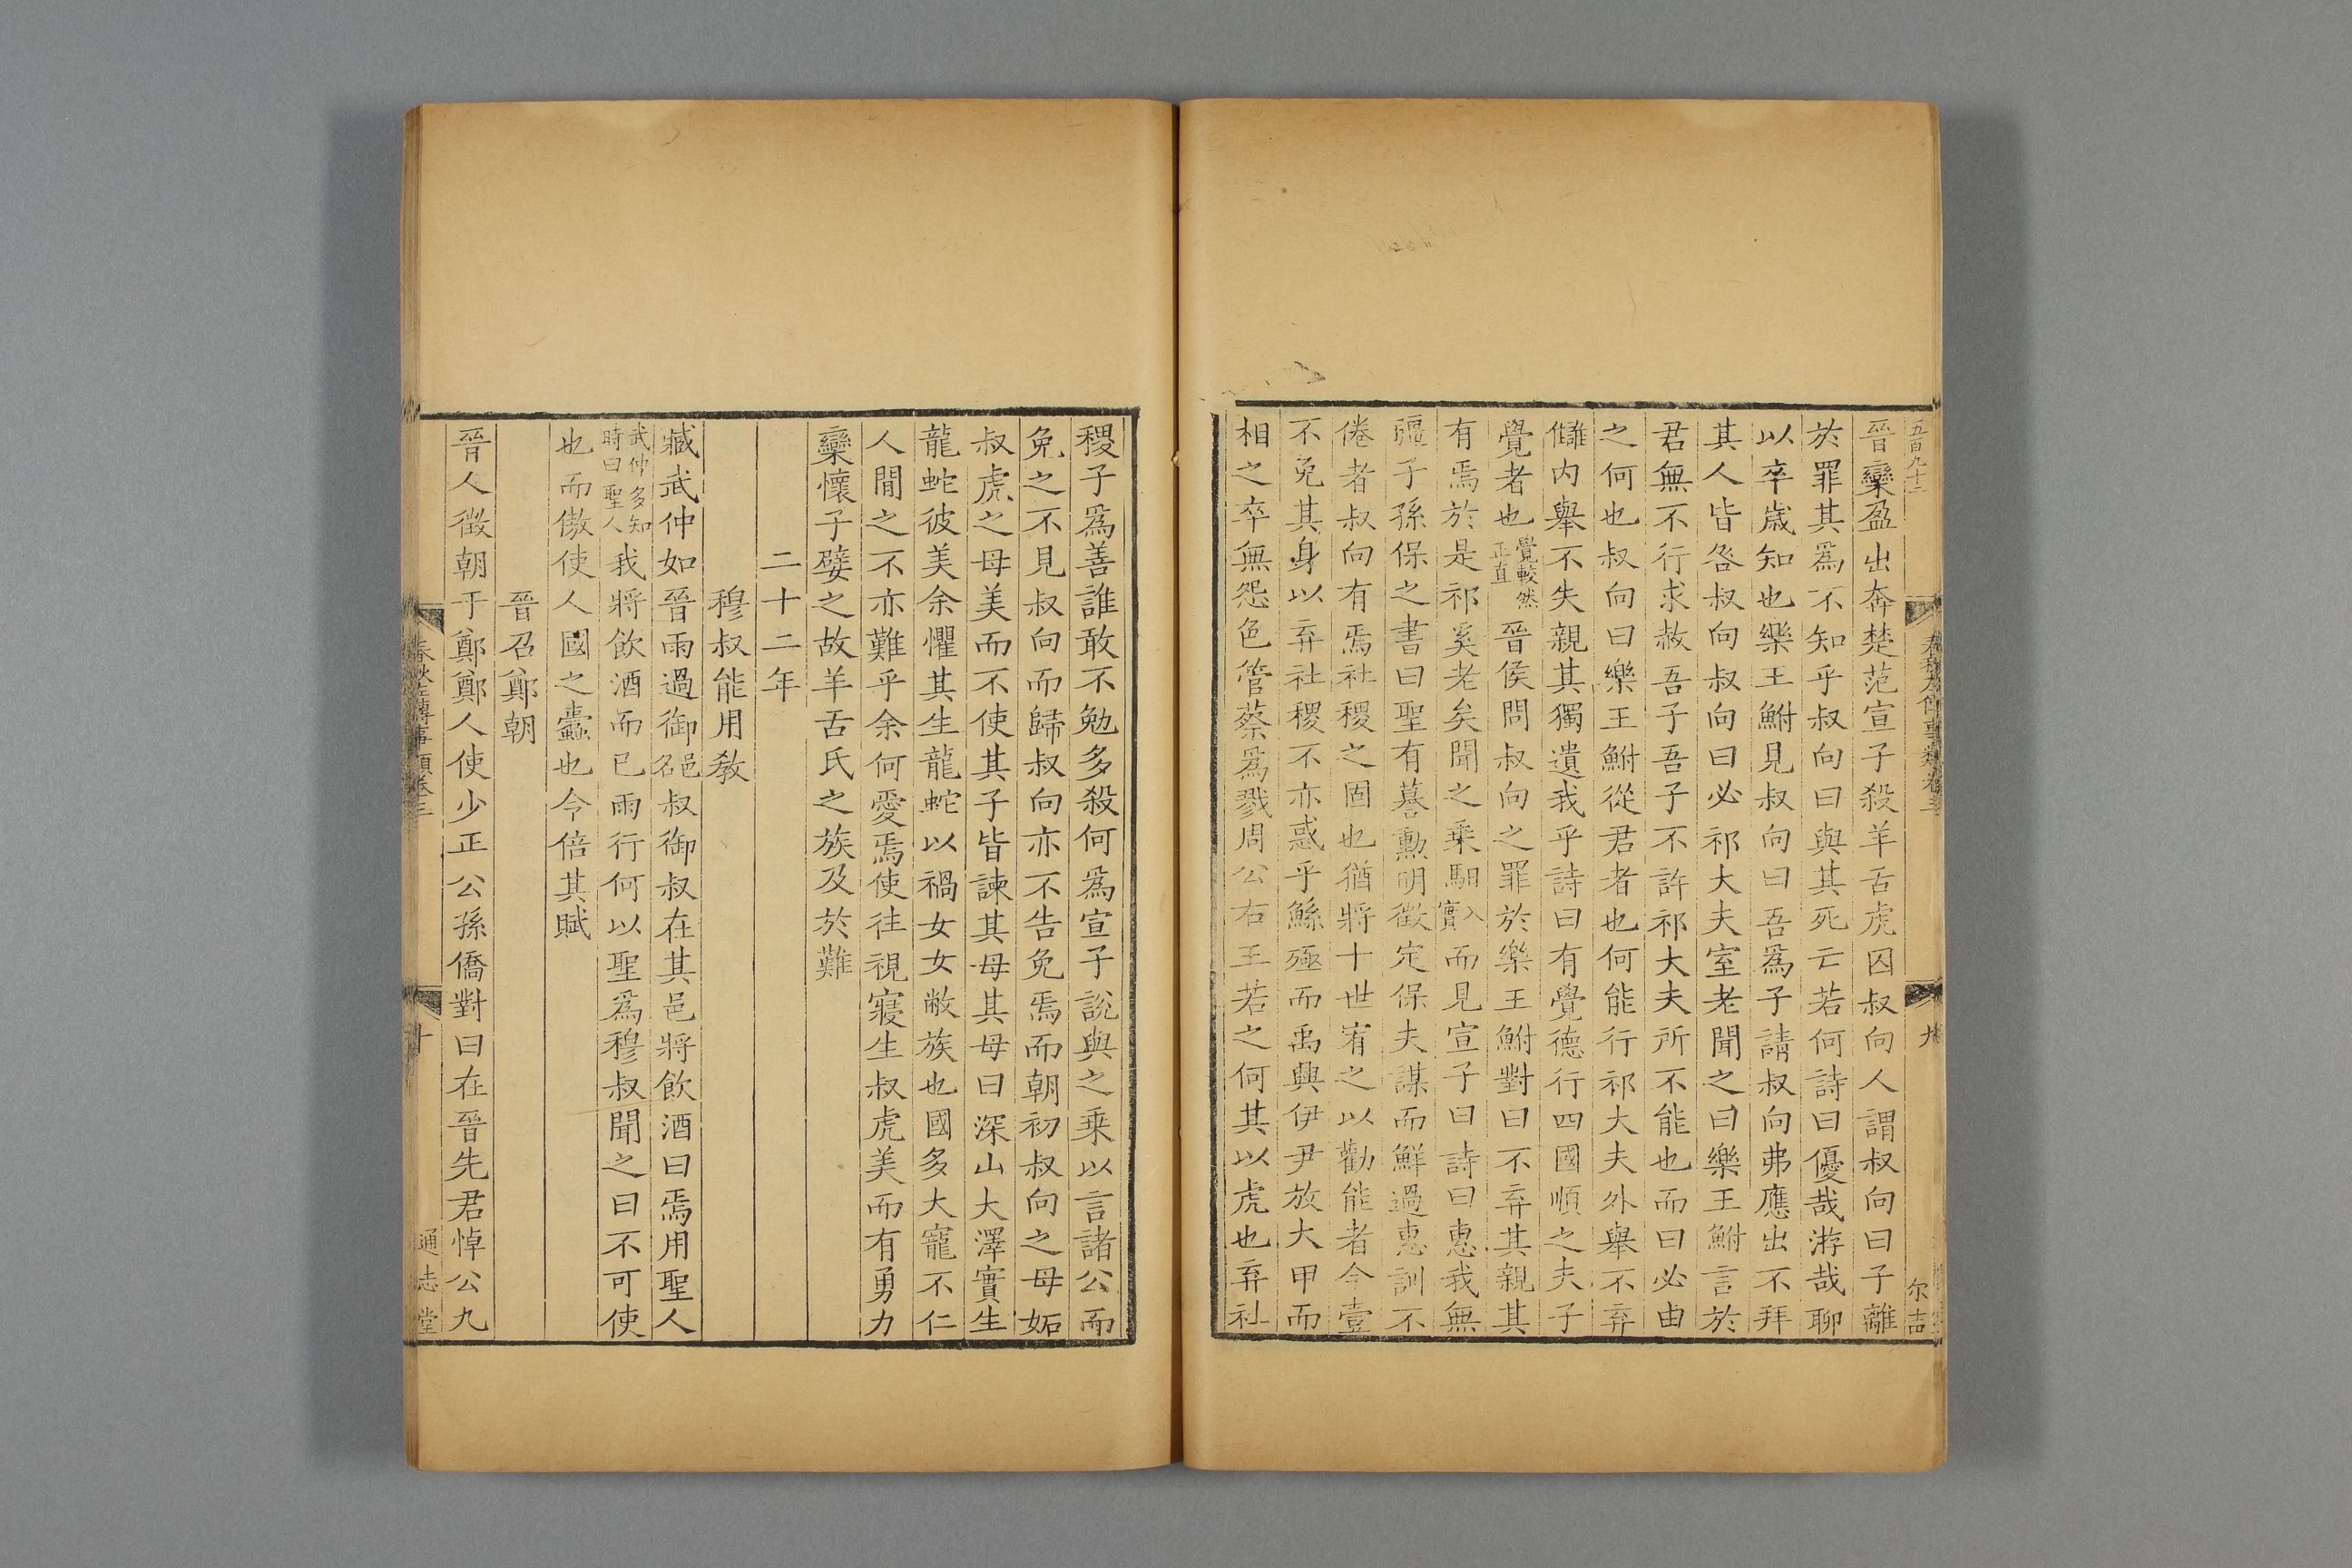 五百九十二
春秋左傳事類卷三
九
尔吉
晉欒盈出奔楚范宣子殺羊舌虎囚叔向人謂叔向曰子離
於罪其爲不知乎叔向曰與其死亡若何詩曰優哉游哉聊
以卒歲知也樂王鮒見叔向曰吾爲子請叔向弗應出不拜
其人皆咎叔向叔向曰必祁大夫室老聞之曰樂王鮒言於
君無不行求赦吾子吾子不許祁大夫所不能也而曰必由
之何也叔向曰樂王鮒從君者也何能行祁大夫外舉不弃
讎内舉不失親其獨遺我乎詩曰有覺德行四國順之夫子
覺者也覺較然正直晉侯問叔向之罪於樂王鮒對曰不弃其親其
有焉於是祁奚老矣聞之乗馹入實而見宣子曰詩曰惠我無
疆子孫保之書曰聖有謩勲明徵定保夫謀而鮮過惠訓不
倦者叔向有焉社稷之固也猶將十世宥之以勸能者今壹
不免其身以弃社稷不亦惑乎鯀殛而禹興伊尹放大甲而
相之卒無怨色管蔡爲戮周公右王若之何其以虎也弃社
稷子爲善誰敢不勉多殺何爲宣子說與之乗以言諸公而
免之不見叔向而歸叔向亦不告免焉而朝初叔向之母妬
叔虎之母美而不使其子皆諫其母其母曰深山大澤實生
龍蛇彼美余懼其生龍蛇以禍女女敝族也國多大寵不仁
人閒之不亦難乎余何愛焉使往視寢生叔虎美而有勇力
欒懷子嬖之故羊舌氏之族及於難
二十二年
穆叔能用敎
臧武仲如晉雨過御邑名叔御叔在其邑將飲酒曰焉用聖人
武仲多知時曰聖人我將飲酒而已雨行何以聖爲穆叔聞之曰不可使
也而傲使人國之蠹也令倍其賦
晉召鄭朝
晉人徵朝于鄭鄭人使少正公孫僑對曰在晉先君悼公九
春秋左傳事類卷三
十
通志堂